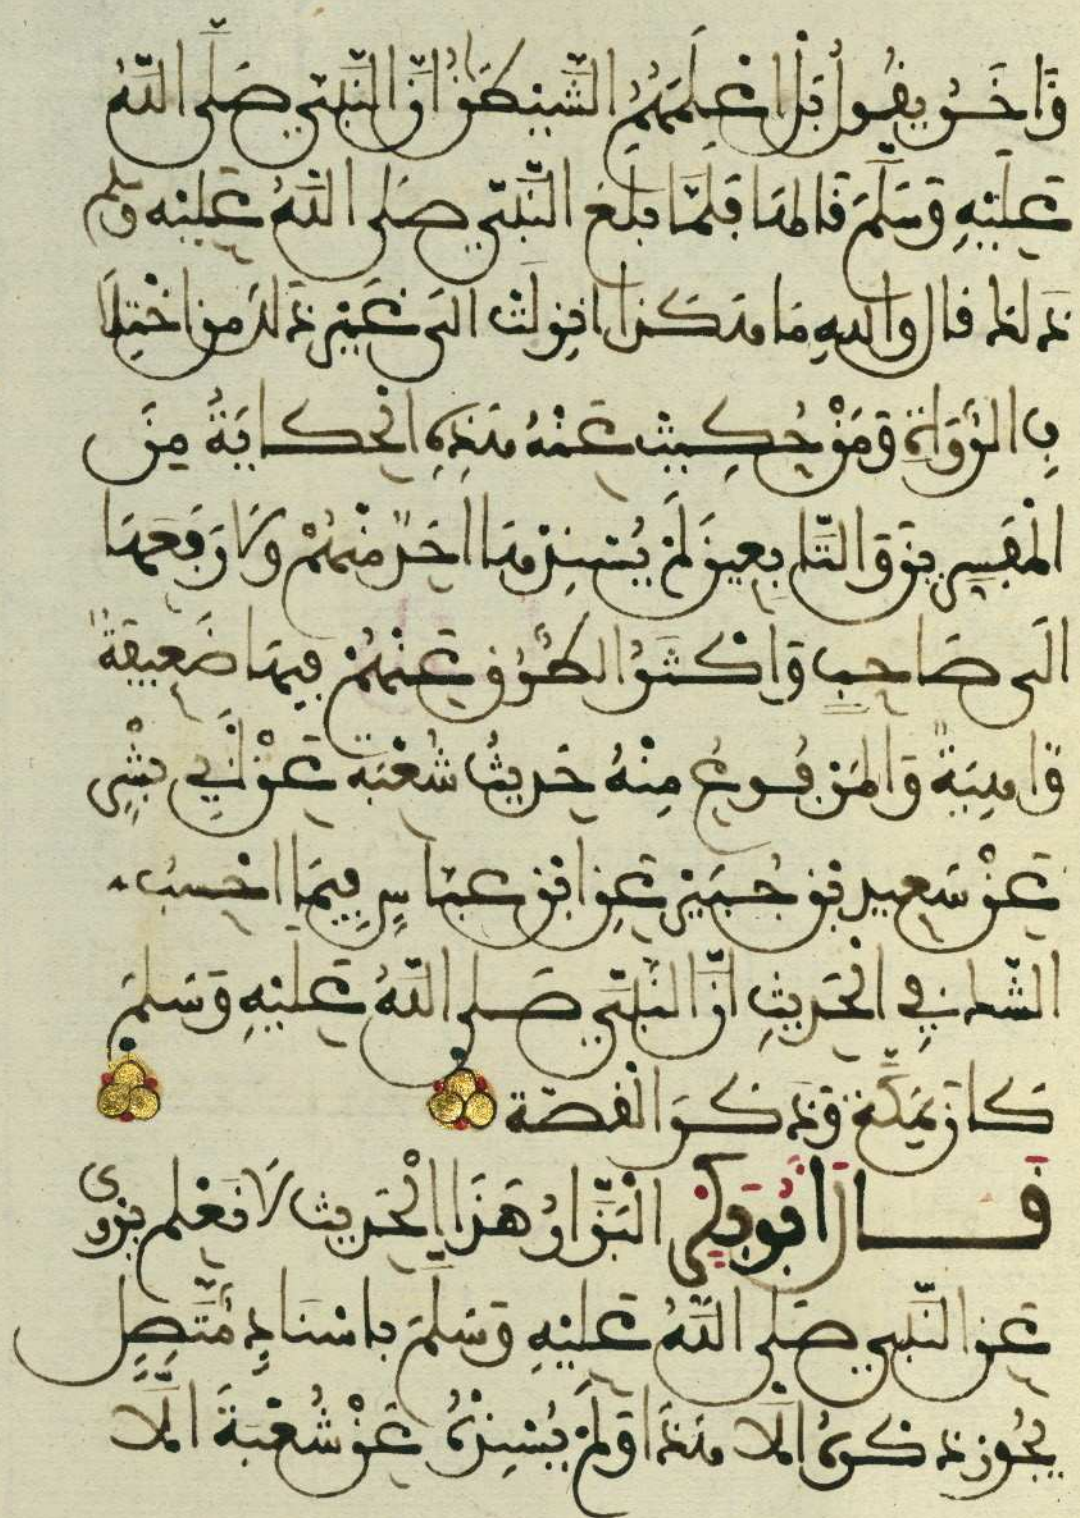 وَءَاخَرُ يقُولُ بَلْ اعْلَمَهُمُ الشَّيْطَنُ انَّ النَّبِيَّ صَلَّى اللَّهُ
عَلَيْهِ وَسَلَّمَ قَالَهَا فَلَمَّا بلَغَ النَّبِيَّ صَلَى اللَّهُ عَلَيْه وسلم
ذَلكَ قال واللهِ مَا هَكَذَا انزِلَتْ الَى غَيْرِ ذَلكَ من اخْتِلَا
فِ الرُّوَاةِ وَمَنْ حُكِيَتْ عَنْهُ هَذِهِ الْحِكَايَةُ مِنَ
الْمُفَسِّرِينَ وَالتَّابِعِينَ لَمْ يُسْنِدْهَا احَدٌ مِنْهُمْ وَلَا رَفَعَهَا
الَى صَاحِبٍ وَاكْثَرُ الطُّرُقِ عَنْهُمْ فِيهَا ضَعِيفَةٌ
وَاهِيَةٌ وَالْمَرْفُوعُ مِنْهُ حَدِيثُ شُعْبَةَ عَنْ أَبِي بِشْرٍ
عَنْ سَعِيدِ بْنِ جُبَيْرٍ عَنِ ابْنِ عَبَّاسٍ فِيمَا احْسِبُ
الشَّك فِي الْحَدِيثِ انَّ النَّبِيَّ صَلى اللَّهُ عَلَيْهِ وَسَلمَ
كَانَ بِمَكَّةَ وَذَكَرَ الْقِصَّة
قَالَ ابُو بَكْرٍ الْبَزَّارُ هَذَا الْحَدِيث لَا نَعْلَمُ يُرْوَى
عَنِ النَّبِي صَلى اللَّهُ عَلَيْهِ وَسَلَّمَ بِاسْنَادٍ مُتَّصِلٍ
يَجُوزُ ذِكْرُهُ الَّا هَذَا وَلَمْ يُسْنِدْهُ عَنْ شُعْبَةَ الَّا